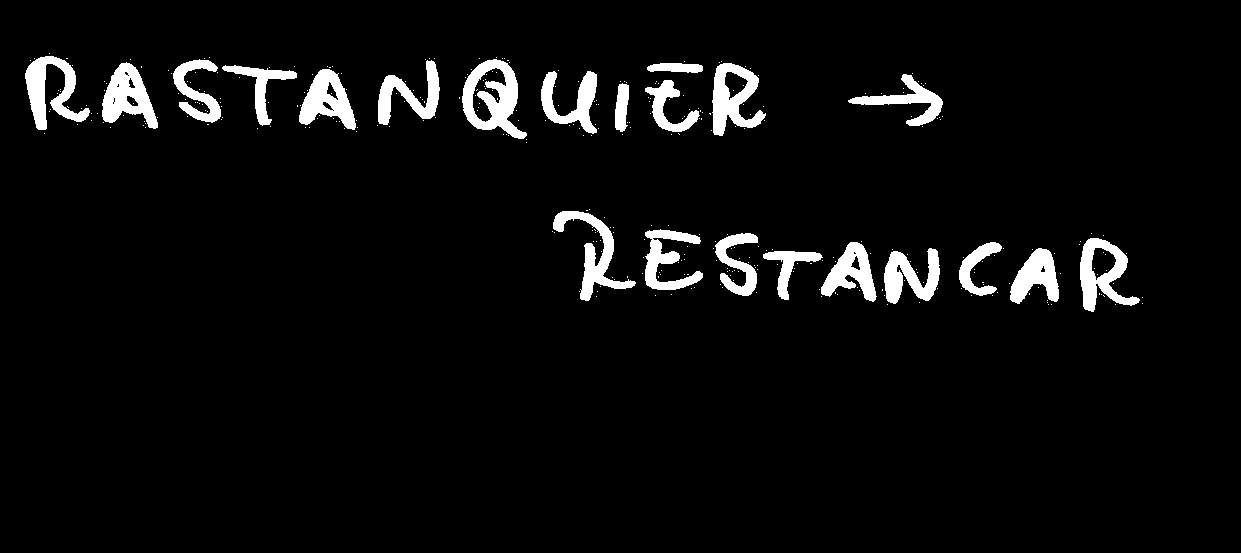 RASTANQUIER →
RESTANCAR